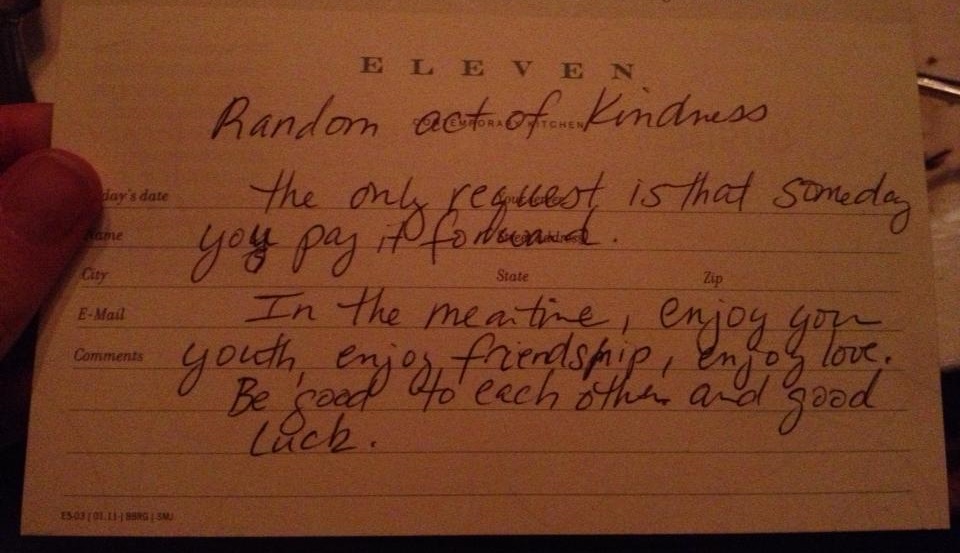 ELEVEN
CONTEMPORARY KITCHEN
Random act of Kindness
day's date
the only request is that someday
Name
you pay it forward.
City State Zip
E-Mail
In the meantime, enjoy your
Comments
youth, enjoy friendship, enjoy love.
Be good to each other and good
luck.
E5-03 | 01.11 | BBRG | SMJ